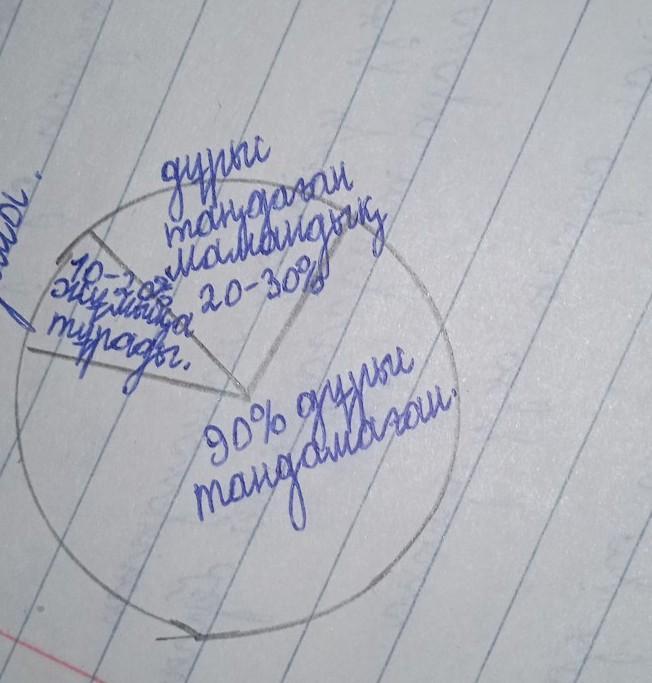 дұрыс
таңдаған
мамандық
20-30%
10-20%
жұмысқа
тұрады.
90% дұрыс
таңдамаған.